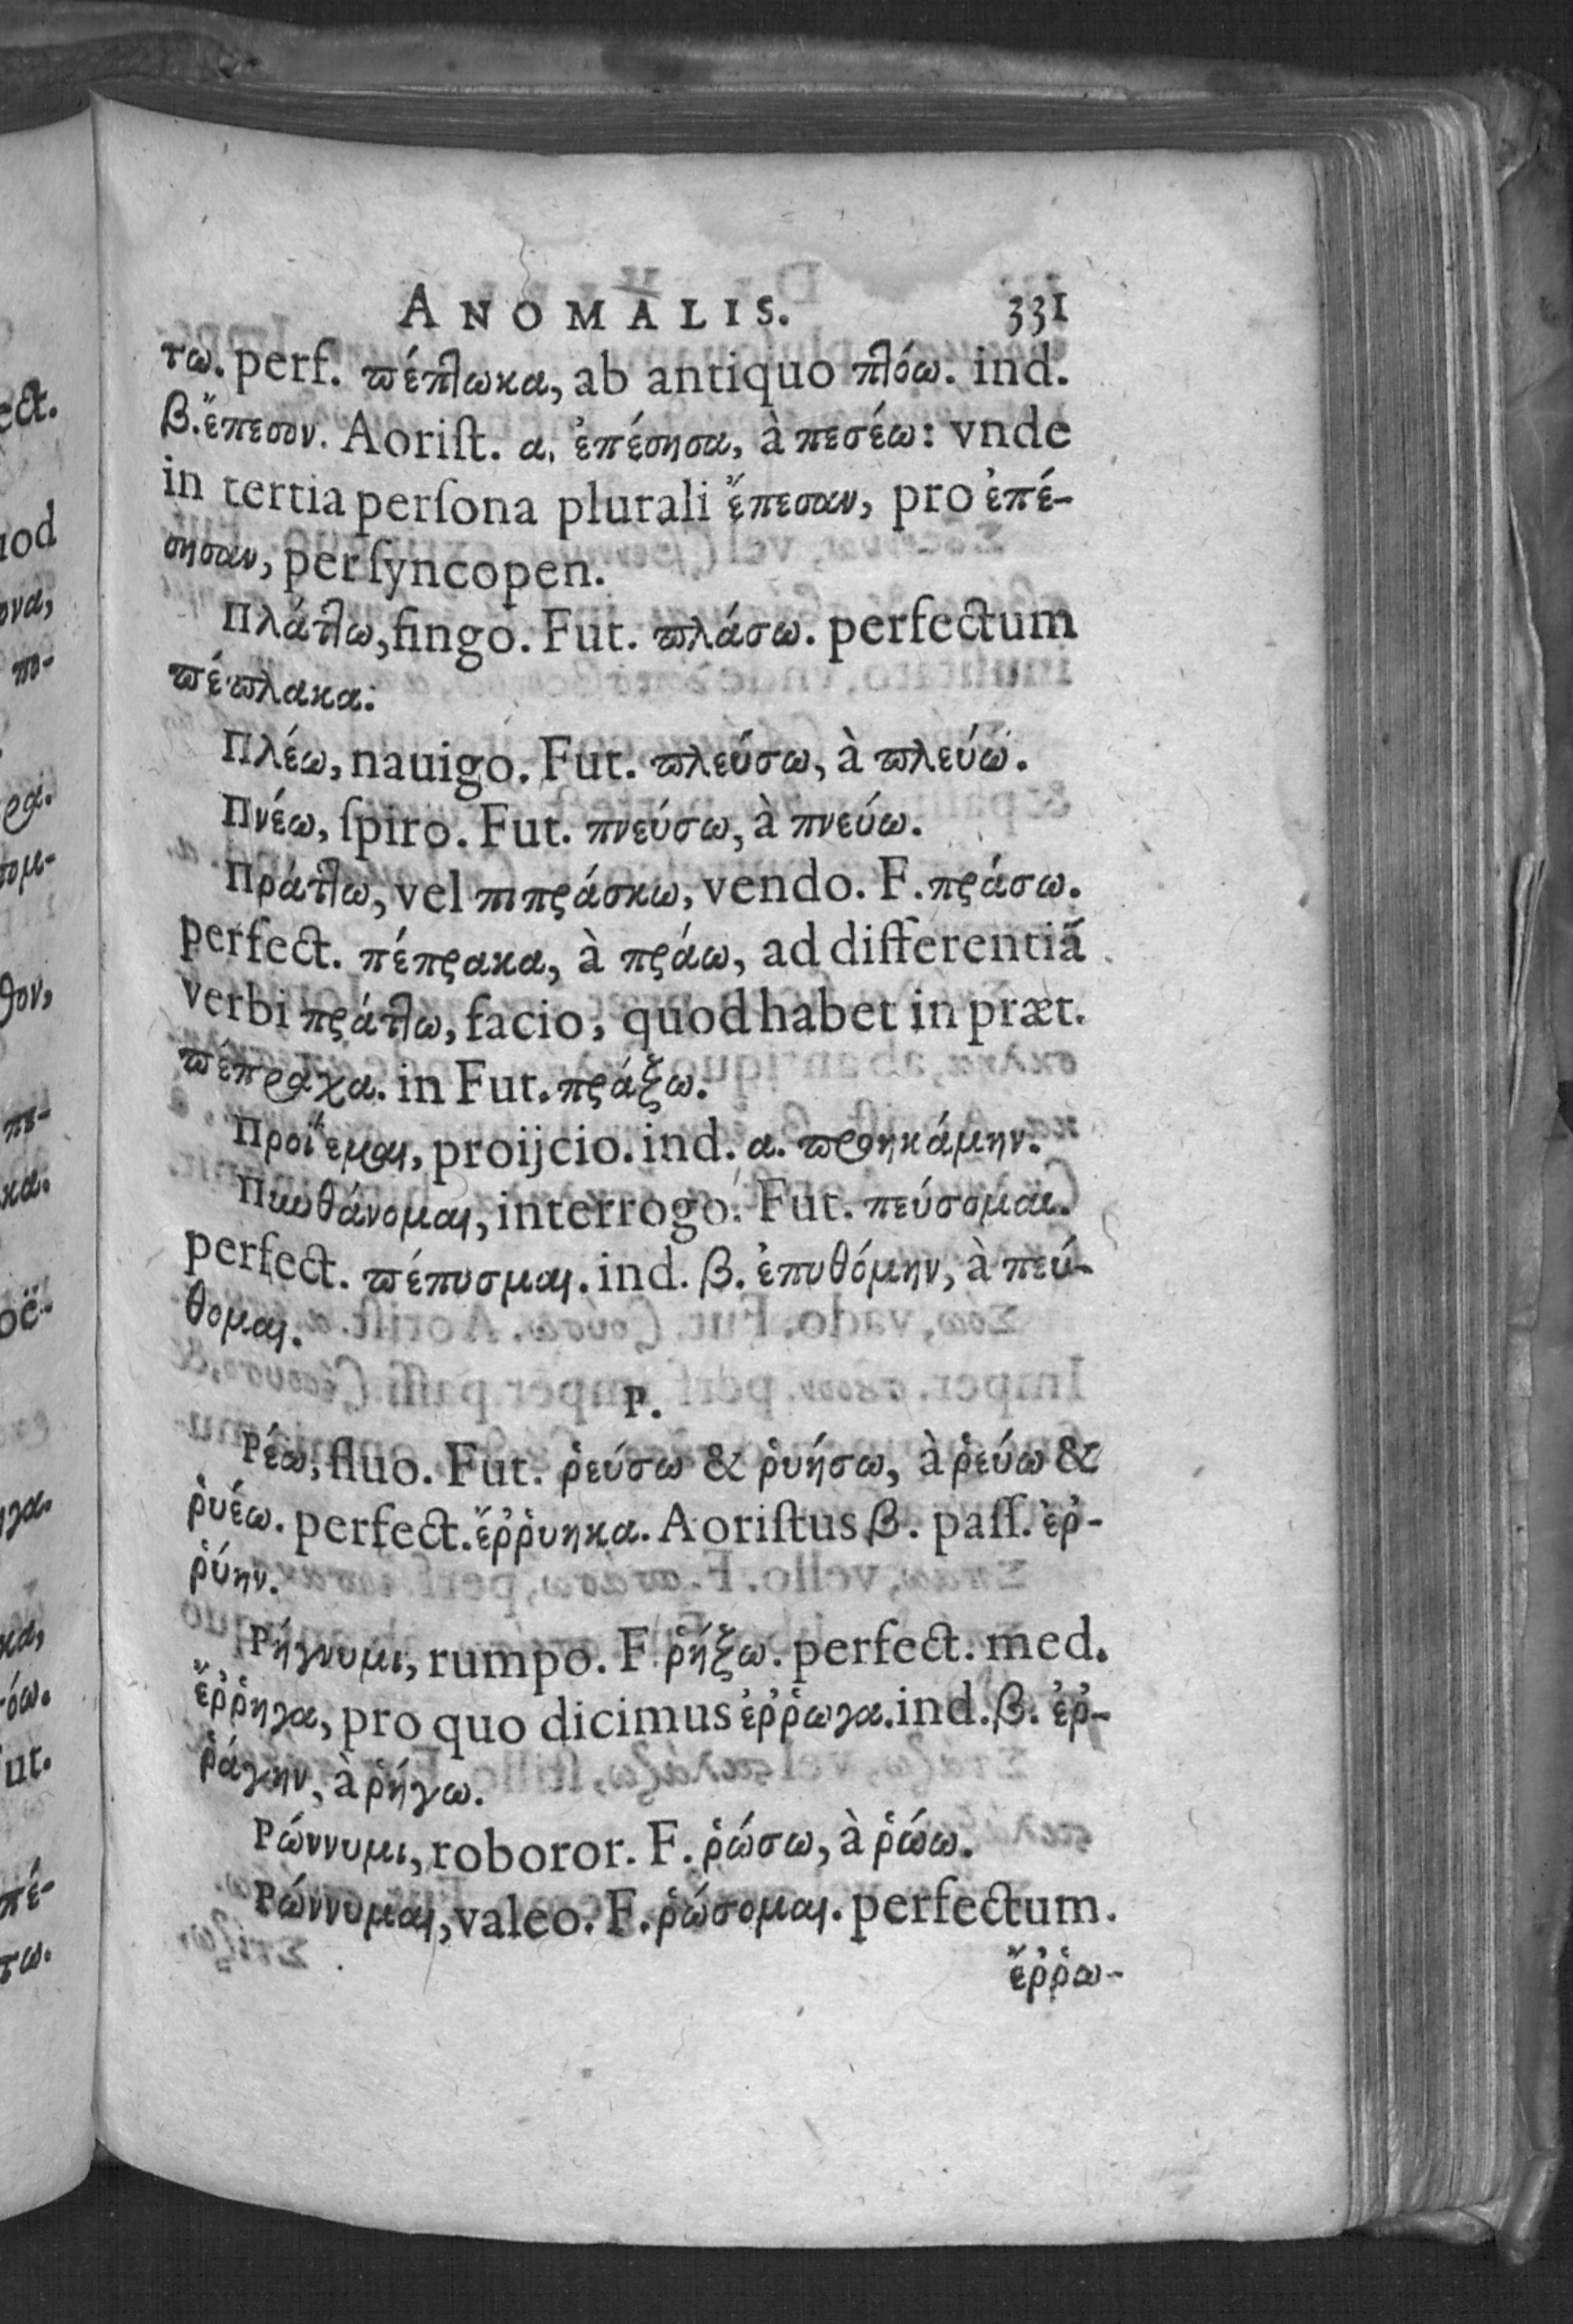 ANOMALIS. 331
τω. perf. πέπτωκα, ab antiquo πτόω. ind.
β. ἔπεσον. Aoriſt. α. ἐπέσησα, à πεσέω: vnde
in tertia perſona plurali ἔπεσαν, pro ἐπέ-
σησαν, per ſyncopen.
Πλάττω, fingo. Fut. πλάσω. perfectum
πέπλακα.
Πλέω, nauigo. Fut. πλεύσω, à πλεύω.
Πνέω, ſpiro. Fut. πνεύσω, à πνεύω.
Πράττω, vel πιπράσκω, vendo. F. πράσω.
perfect. πέπρακα, à πράω, ad differentiã
verbi πράττω, facio, quod habet in præt.
πέπραχα. in Fut. πράξω.
Προΐεμαι, proijcio. ind. α. προηκάμην.
Πυνθάνομαι, interrogo. Fut. πεύσομαι.
perfect. πέπυσμαι. ind. β. ἐπυθόμην, à πεύ-
θομαι.
Ρ.
Ρέω, fluo. Fut. ῥεύσω & ῥυήσω, à ῥεύω &
ῥυέω. perfect. ἔῤῥυηκα. Aoriſtus β. paſſ. ἐῤ-
ῥύην.
Ρήγνυμι, rumpo. F. ῥήξω. perfect. med.
ἔῤῥηγα, pro quo dicimus ἐῤῥωγα. ind. β. ἐῤ-
ῥάγην, à ῥήγω.
Ρώννυμι, roboror. F. ῥώσω, à ῥώω.
Ρώννυμαι, valeo. F. ῥώσομαι. perfectum.
ἔῤῥω-